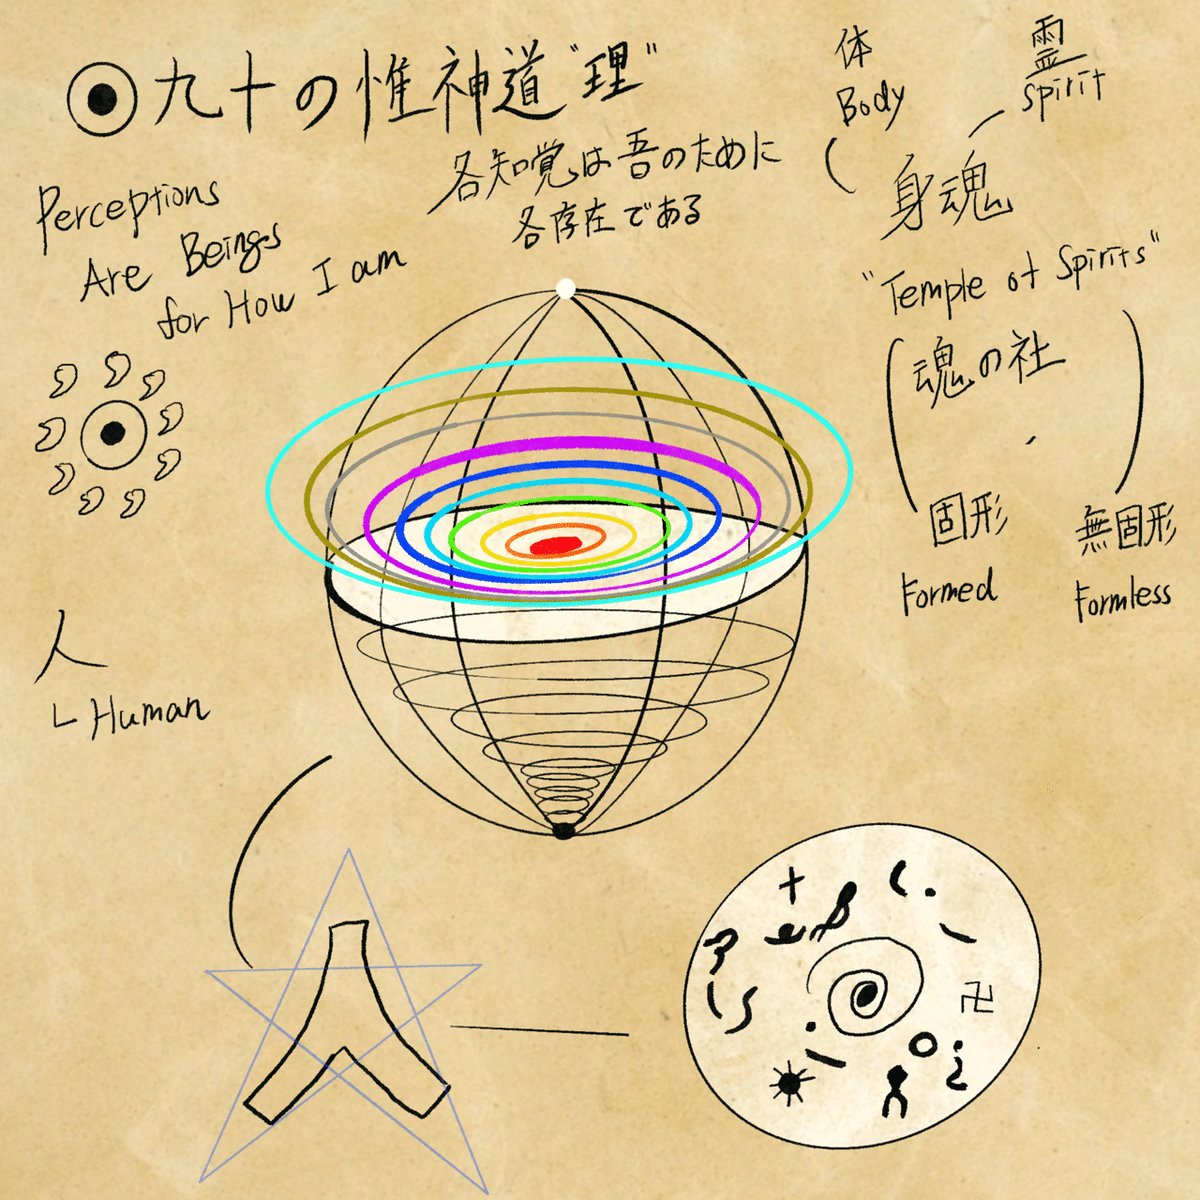 九十の惟神道"理"
各知覚は吾のために
各存在である
Perceptions
Are Beings
for How I am
体
Body
霊
Spirit
身魂
"Temple of Spirits"
魂の社
固形
Formed
無固形
Formless
人
Human
卍